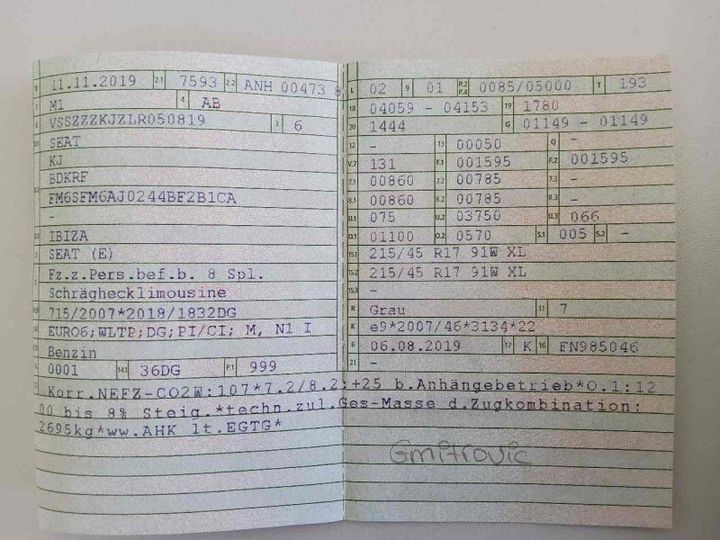 B 11.11.2019 2.1 7593 2.2 ANH 00473 8
J M1 4 AB
E VSSZZZKJZLR050819 3 6
SEAT
KJ
BDKRF
FM6SFM6AJ0244BF2B1CA
-
IBIZA
SEAT (E)
Fz.z.Pers.bef.b. 8 Spl.
Schräghecklimousine
715/2007*2018/1832DG
EURO6;WLTP;DG;PI/CI; M, N1 I
Benzin
0001 14.1 36DG P.1 999
L 02 9 01 P.2 P.4 0085/05000 T 193
18 04059 - 04153 19 1780
20 1444 G 01149 - 01149
12 - 13 00050 Q -
V.7 131 F.1 001595 F.2 001595
7.1 00860 7.2 00785 7.3 -
8.1 00860 8.2 00785 8.3 -
U.1 075 U.2 03750 U.3 066
O.1 01100 O.2 0570 S.1 005 S.2 -
15.1 215/45 R17 91W XL
15.2 215/45 R17 91W XL
15.3 -
R Grau 11 7
K e9*2007/46*3134*22
6 06.08.2019 17 K 16 FN985046
21 -
Korr.NEFZ-CO2W:107*7.2/8.2:+25 b.Anhängebetrieb*O.1:12
00 bis 8% Steig.*techn.zul.Ges-Masse d.Zugkombination:
2695kg*ww.AHK lt.EGTG*
Gmitrovic